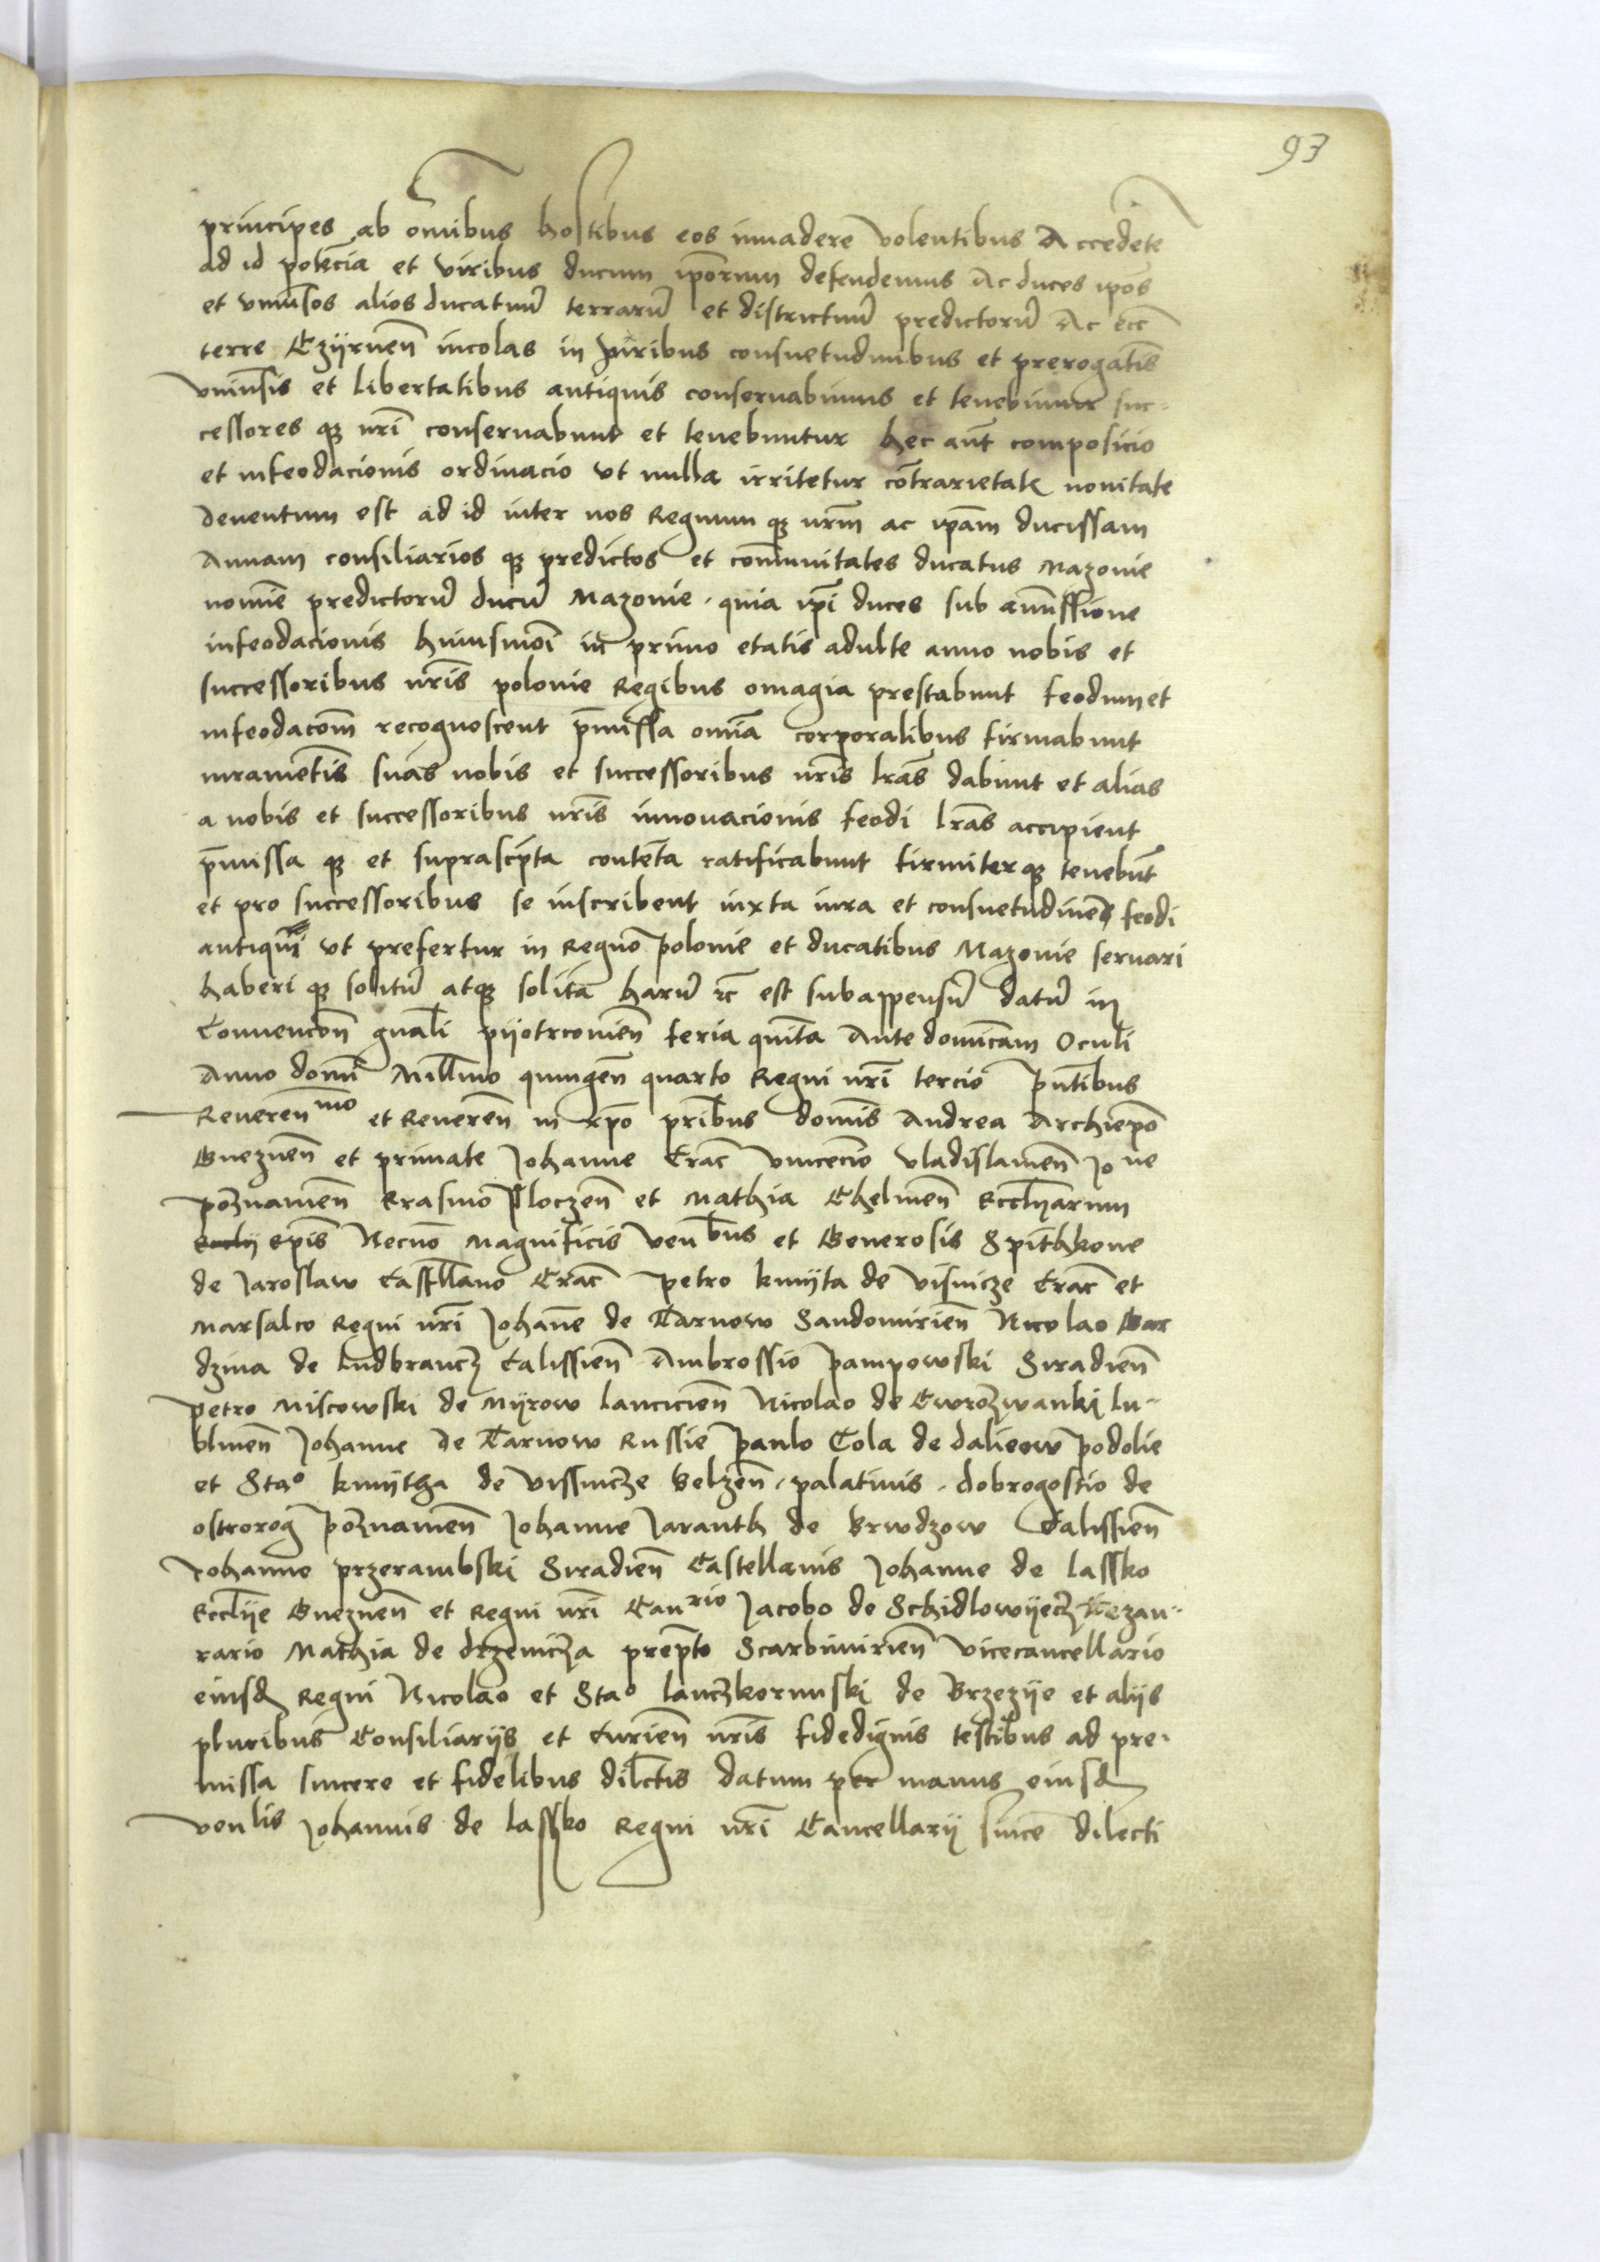 93
principes ab om̄ibus hostibus eos inuadere volentibus Accedēte
ad id potēcia et viribus ducum ip̄orum defendemus Ac duces ip̄os
et vniu͛sos alios ducatuum̄ terrarum̄ et districtuum̄ predictorum̄ Ac ecc̄
terre Czyrnen̄ incolas in iuribus consuetudinibus et prerogat̄is
vniu͛sis et libertatibus antiquis conseruabimus et tenebimur suc-
cessores qȝ nr̄i conseruabunt et tenebuntur hec aūt composicio
et infeodacionis ordinacio vt nulla irritetur cōtrarietate nouitate
deuentum est ad id inter nos Regnum qȝ nr̄m ac ip̄am ducissam
Annam consiliarios qȝ predictos et com̄unitates ducatus Mazouie
nomīe predictorum̄ ducum̄ Mazouie quia ip̄i duces sub amissione
infeodacionis huiusmōi in primo etatis adulte anno nobis et
successoribus nr̄is polonie Regibus omagia prestabunt feodum et
infeodacōm recognoscent p̄missa om̄ia corporalibus firmabunt
iuramētis suas nobis et successoribus nr̄is lr̄as dabunt et alias
a nobis et successoribus nr̄is innouacionis feodi lr̄as accipient
p̄missa qȝ et suprascp̄ta contēta ratificabunt firmiterqȝ tenebūt
et pro successoribus se inscribent iuxta iura et consuetudinem feodi
antiqui vt prefertur in Regno polonie et ducatibus Mazouie seruari
haberi qȝ solitum̄ atqȝ solitā harum̄ rc̄ est subappensum̄ datum̄ in
Conuencōn gnāli pyotrcouien̄ feria quīta Ante domīcam Oculi
Anno domī Mill̄mo quingen̄ quarto Regni nr̄i tercio pn̄tibus
Reueren̄mo et Reueren̄ in xp̄o prībus domīs Andrea Archiepō
Gneznen̄ et primate Johanne Crac̄ vincēcio vladislauien̄ Jone
poznanien̄ Erasmo ploczen̄ et Mathia Chelmen̄ Eccl̄iarum
Ep̄is Necnō Magnificis venbus et Generosis Spithkone
de Jaroslaw Castell̄ano Crac̄ petro kmyta de visnicze Crac̄ et
Marsalco Regni nr̄i Johan̄e de Tarnow Sandomirien̄ Nicolao Gar
dzina de Ludbrancz Calissien̄ Ambrossio pampowski Siradien̄
petro Miscowski de Myrow lancicien̄ Nicolao de Cwrozwanki lu-
blinen̄ Johanne de Tarnow Russie paulo Cola de dalieow podolie
et Stao kmytha de vissnicze belzen̄ palatinis dobrogostio de
ostrorog poznanien̄ Johanne Jaranth de brwdzow Calissien̄
Johanne przerambski Siradien̄ Castellanis Johanne de lassko
Eccl̄ie Gneznen̄ et Regni nr̄i Canrio Jacobo de Schidlowyecz thezau-
rario Mathia de drzewicza prep̄to Scarbimirien̄ vicecancellario
eiusd̄ Regni Nicolao et Stao lanczkorunski de Brzezye et aliis
pluribus Consiliarys et Curien̄ nr̄is fidedignis testibus ad pre-
missa sincere et fidelibus dilc̄tis datum per manus eiusd̄
venlis Johannis de lassko Regni nr̄i Cancellarij sincē dilecti